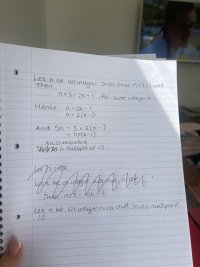 Let n be an integer such that n+3 is odd
Then
n+3 = 2k+1 for some integer k
Hence n = 2k-1
n = 2(k-1)
And 5n = 5 × 2(k-1)
= 10(k-1)
5n is therefore
multiple of 10
Then n+3 =
Let n be an integer such that 5n is a multiple of
10